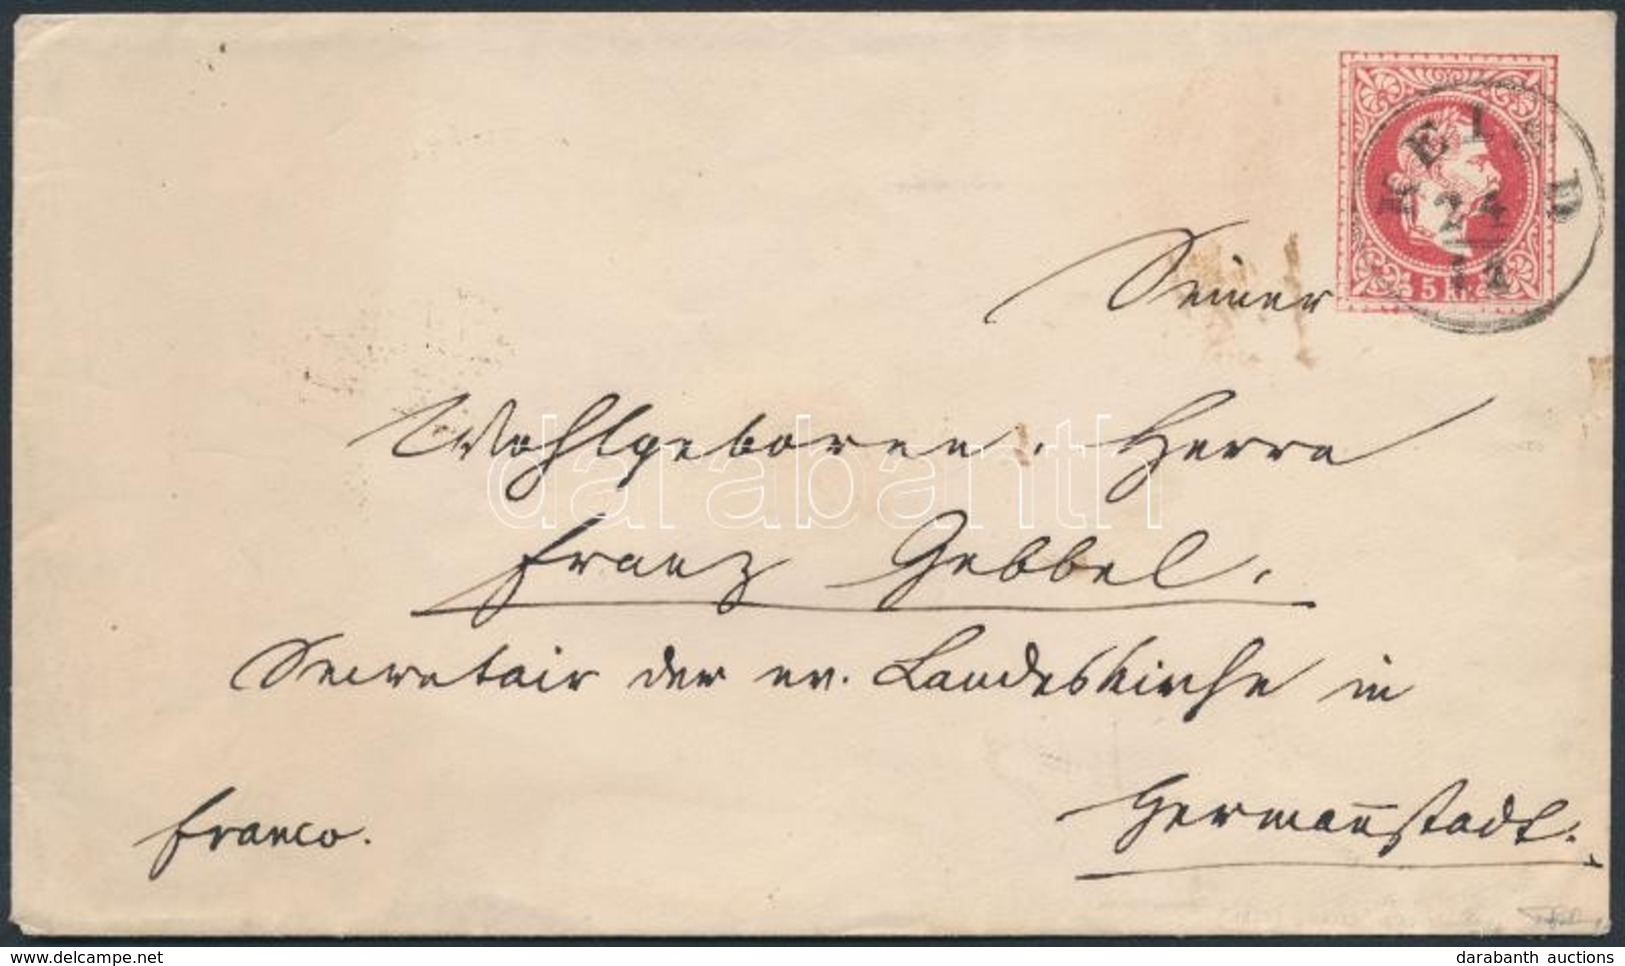 REISD
24
5 Kr.
Seiner
Wohlgeboren. Herrn
darabanth
Franz Gebbel.
Secretair der ev. Landeskirche in
Hermanstadt.
franco.
delcampe.net
darabanth auctions